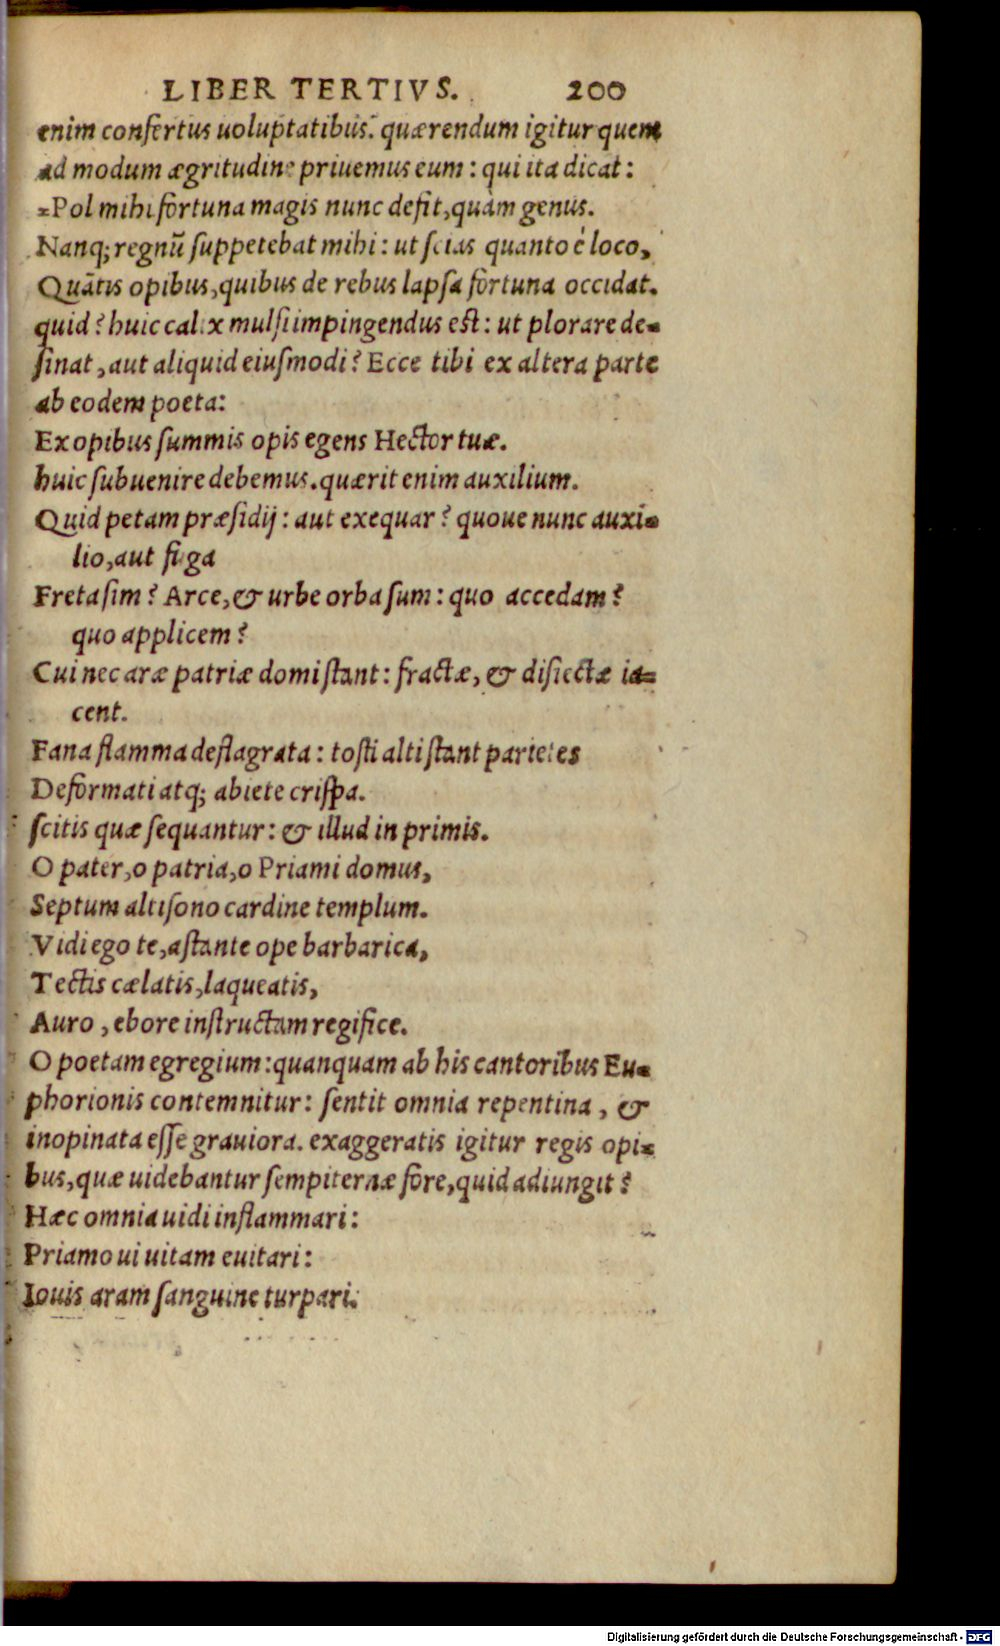 LIBER TERTIVS. 200
enim confertus uoluptatibus. quærendum igitur quem
ad modum ægritudine priuemus eum : qui ita dicat :
Pol mihi fortuna magis nunc defit, quàm genus.
Nanq; regnū suppetebat mihi : ut scias quanto è loco,
Quātis opibus, quibus de rebus lapsa fortuna occidat.
quid ? huic calix mulsi impingendus est : ut plorare de=
sinat, aut aliquid eiusmodi ? Ecce tibi ex altera parte
ab eodem poeta:
Ex opibus summis opis egens Hector tuæ.
huic subuenire debemus. quærit enim auxilium.
Quid petam præsidij : aut exequar ? quoue nunc auxi=
lio, aut fuga
Freta sim ? Arce, & urbe orba sum : quo accedam ?
quo applicem ?
Cui nec aræ patriæ domi stant : fractæ, & disiectæ ia=
cent.
Fana flamma deflagrata : tosti alti stant parietes
Deformati atq; abiete crispa.
scitis quæ sequantur : & illud in primis.
O pater, o patria, o Priami domus,
Septum altisono cardine templum.
Vidi ego te, astante ope barbarica,
Tectis cælatis, laqueatis,
Auro, ebore instructam regifice.
O poetam egregium : quanquam ab his cantoribus Eu=
phorionis contemnitur : sentit omnia repentina, &
inopinata esse grauiora. exaggeratis igitur regis opi=
bus, quæ uidebantur sempiternæ fore, quid adiungit ?
Hæc omnia uidi inflammari :
Priamo ui uitam euitari :
Iouis aram sanguine turpari.
Digitalisierung gefördert durch die Deutsche Forschungsgemeinschaft - DFG